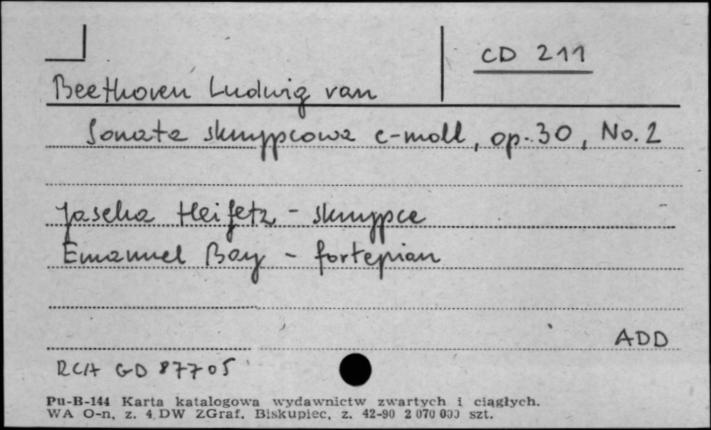 CD 211
Beethoven Ludwig van
Sonata skrzypcowa c-moll, op. 30, No. 2
Jascha Heifetz - skrzypce
Emanuel Bay - fortepian
ADD
RCA GD 87705
Pu-B-144 Karta katalogowa wydawnictw zwartych i ciągłych.
WA O-n, z. 4 DW ZGraf. Biskupiec, z. 42-90 2 070 000 szt.